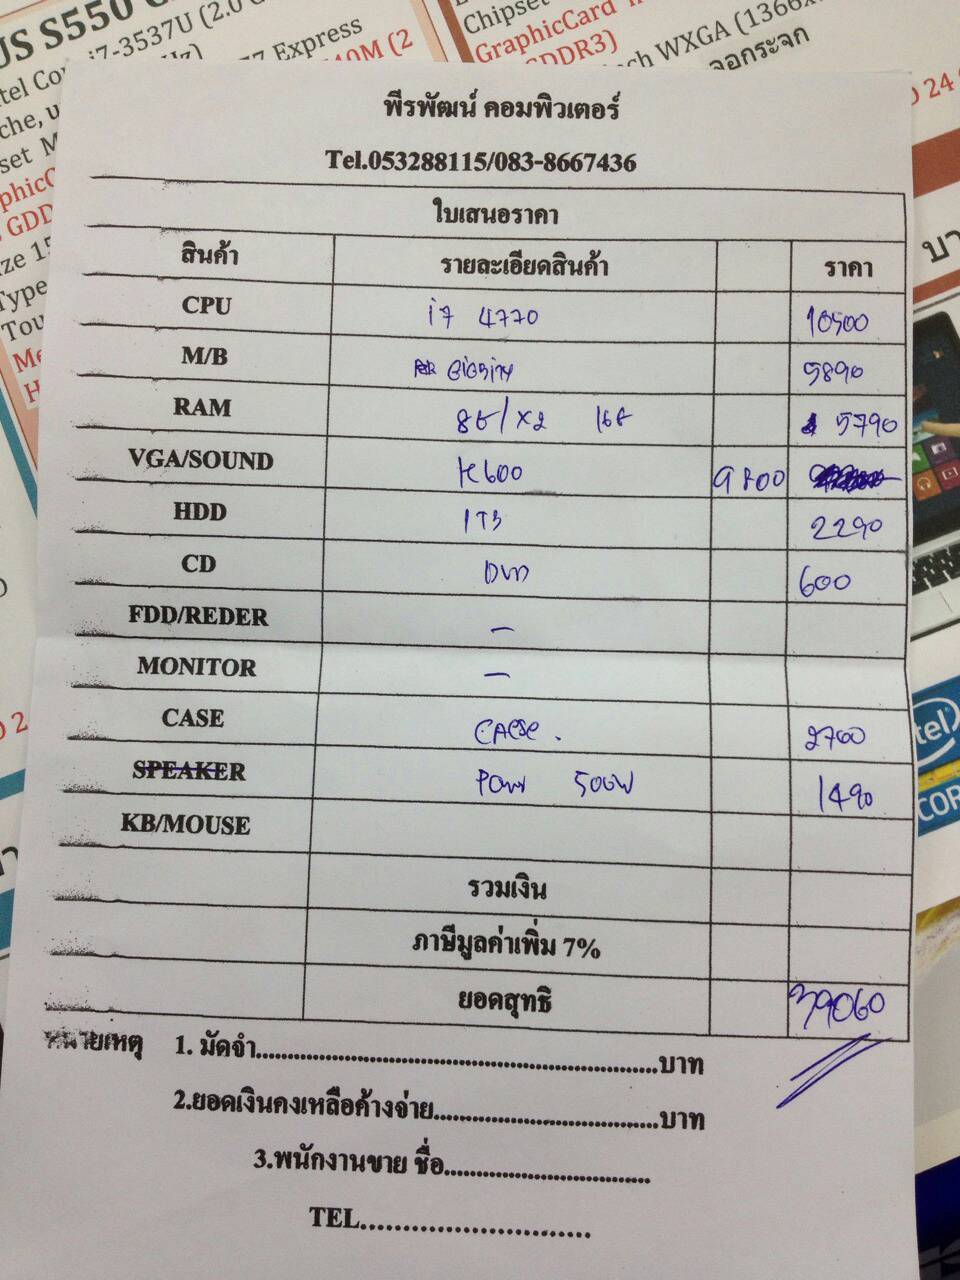 US S550
tel Co
i7-3537U (2.0
Express
che, u
set M
40M (2
GDD
ze 15
Type
Tou
Chipset
GraphicCard
GDDR3)
ch WXGA (1366x
จอกระจก
24
พีรพัฒน์ คอมพิวเตอร์
Tel.053288115/083-8667436
ใบเสนอราคา
สินค้า รายละเอียดสินค้า ราคา
CPU i7 4770 10500
M/B 5890
RAM 8G/X2 16G 5790
VGA/SOUND K600 9800
HDD 1TB 2290
CD DVD 600
FDD/REDER -
MONITOR -
CASE CASE. 2700
SPEAKER Power 500W 1490
KB/MOUSE
รวมเงิน
ภาษีมูลค่าเพิ่ม 7%
ยอดสุทธิ 39060
หมายเหตุ 1. มัดจำ..........บาท
2.ยอดเงินคงเหลือค้างจ่าย..........บาท
3.พนักงานขาย ชื่อ..........
TEL..........
บา
tel
COR